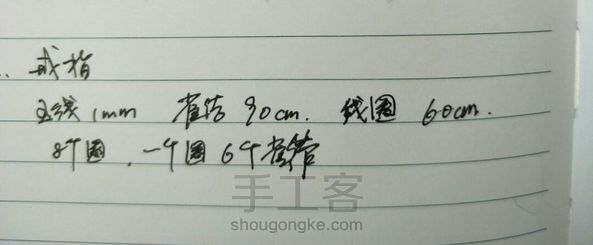 戒指
玉线1mm 雀结90cm. 线圈 60cm.
8个圈,一个圈6个雀结
手工客
shougongke.com